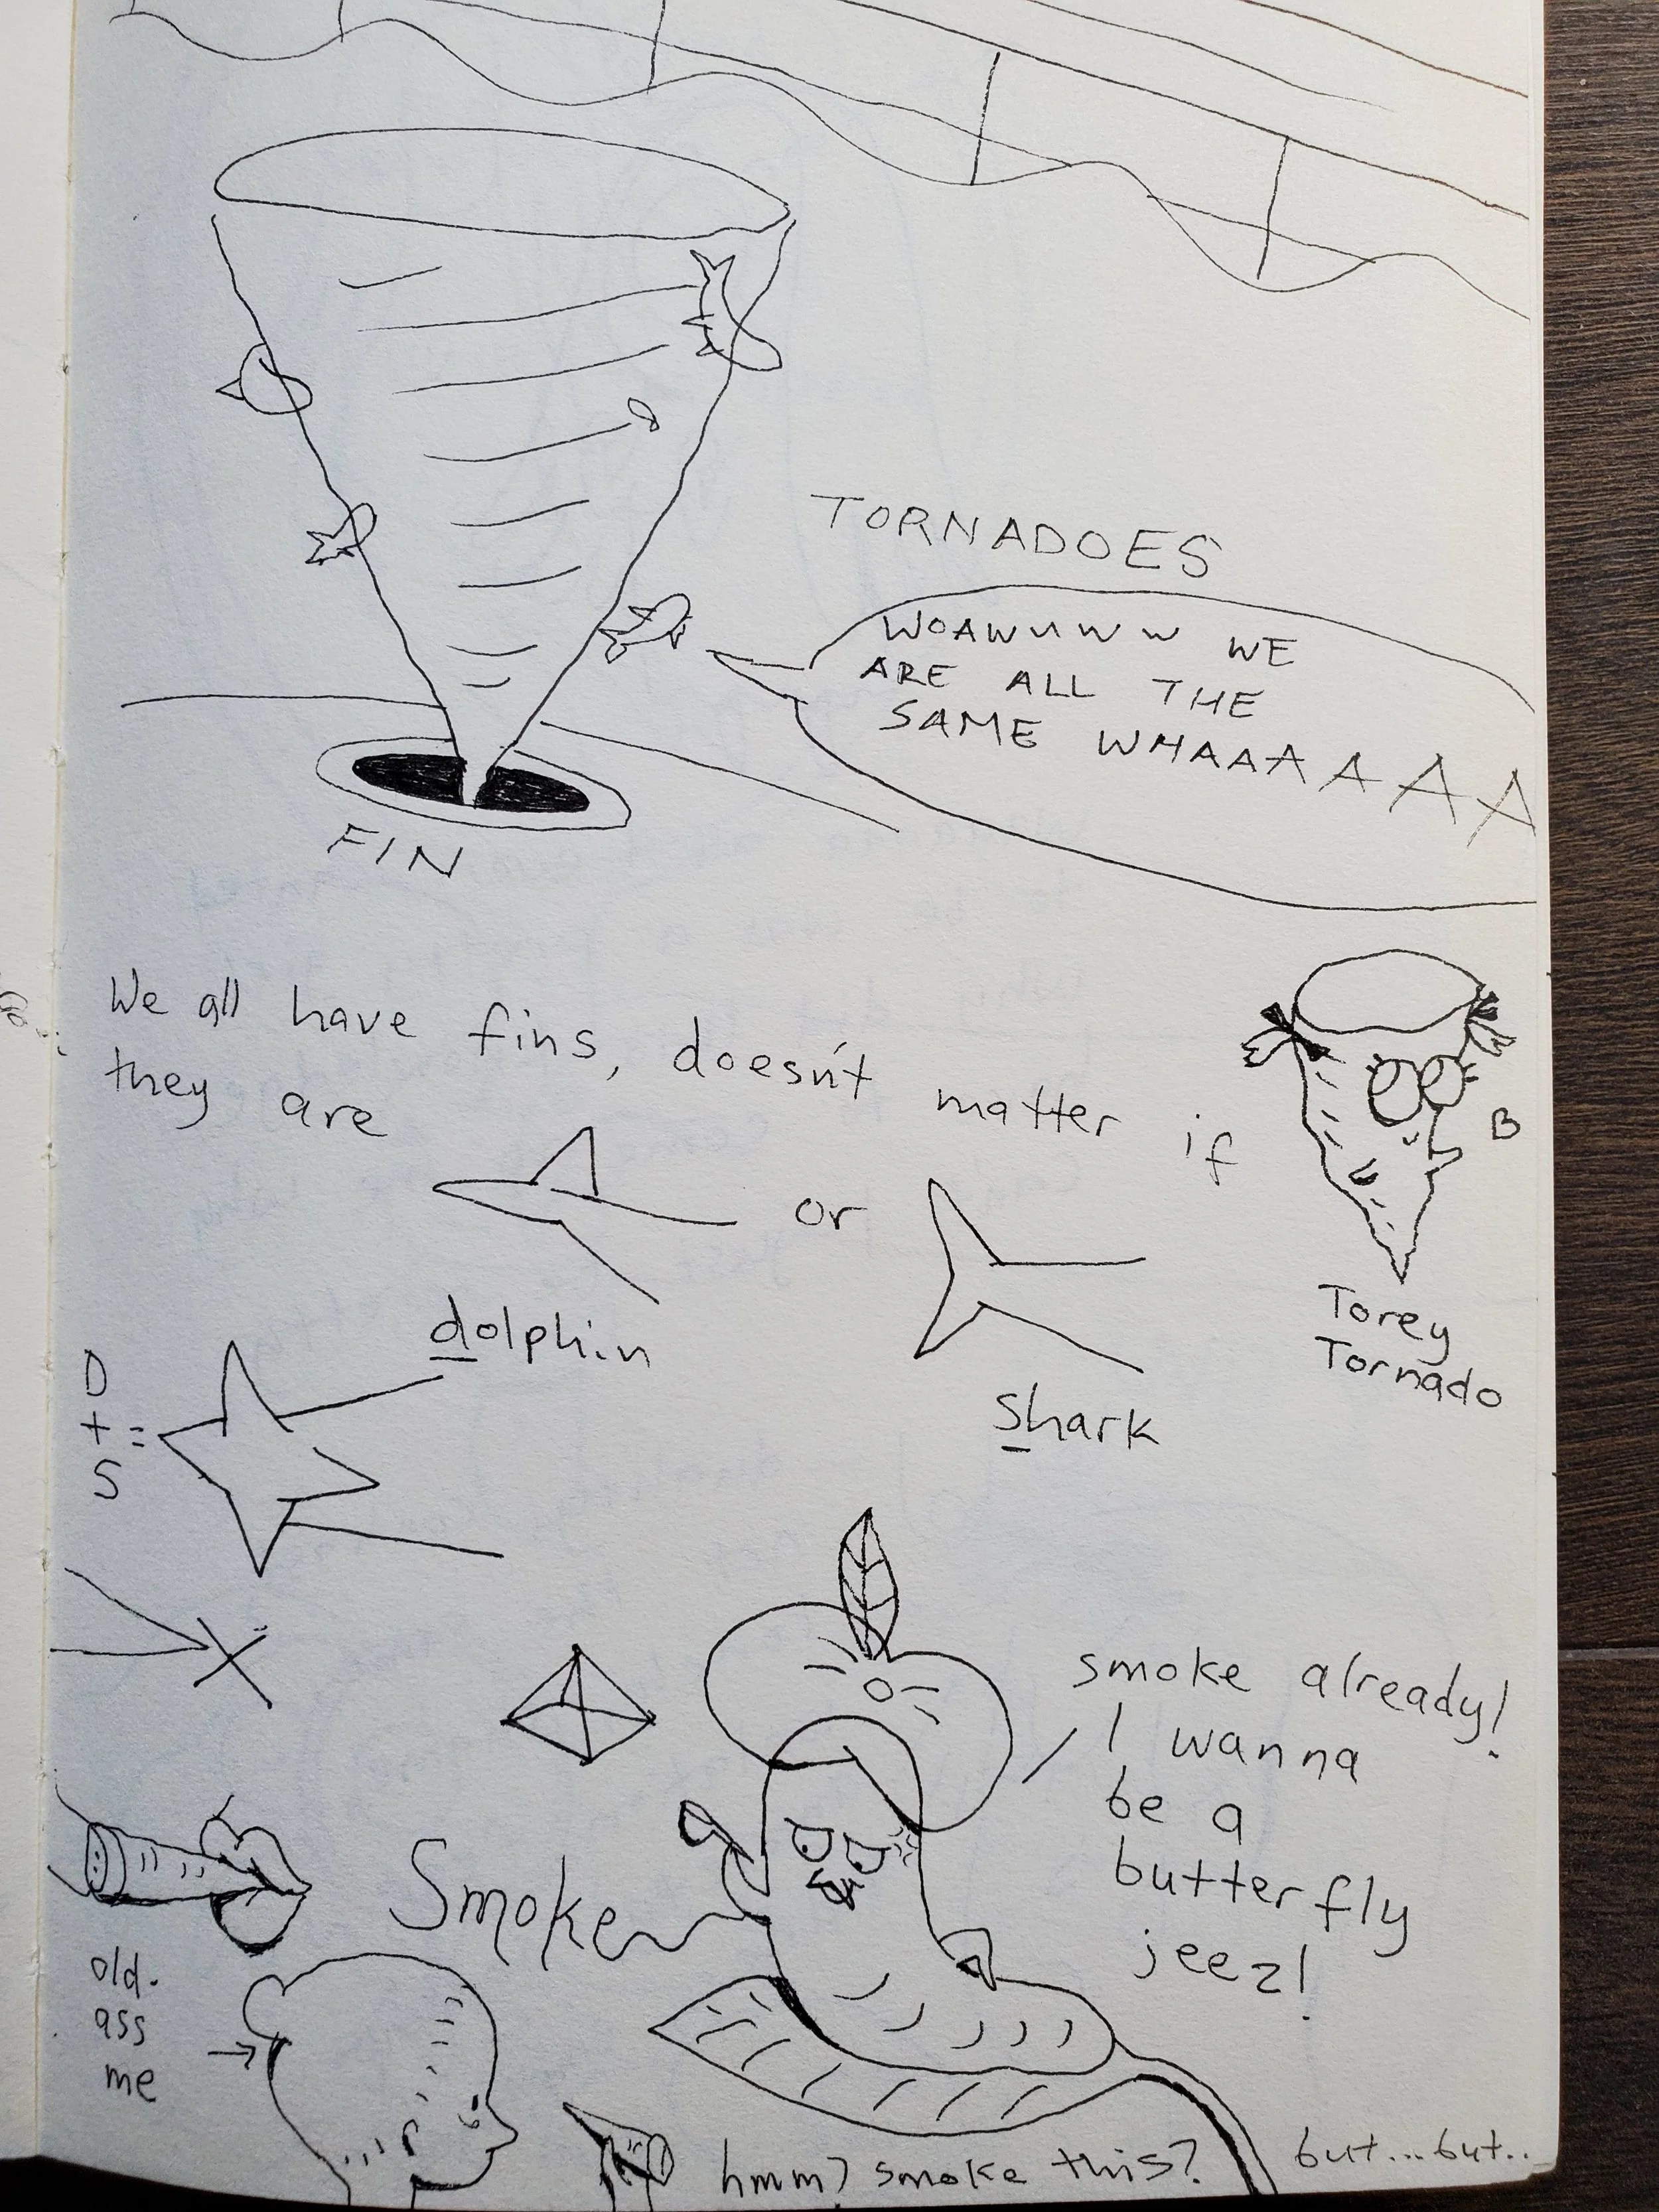 TORNADOES
WOAWUWW WE
ARE ALL THE
SAME WHAAAAAAA
FIN
We all have fins, doesn't matter if
they are
or
dolphin
shark
B
Torey
Tornado
D
+ =
S
smoke already!
I wanna
be a
butterfly
jeez!
Smoke
old-
ass
me
hmm? smoke this?
but...but..